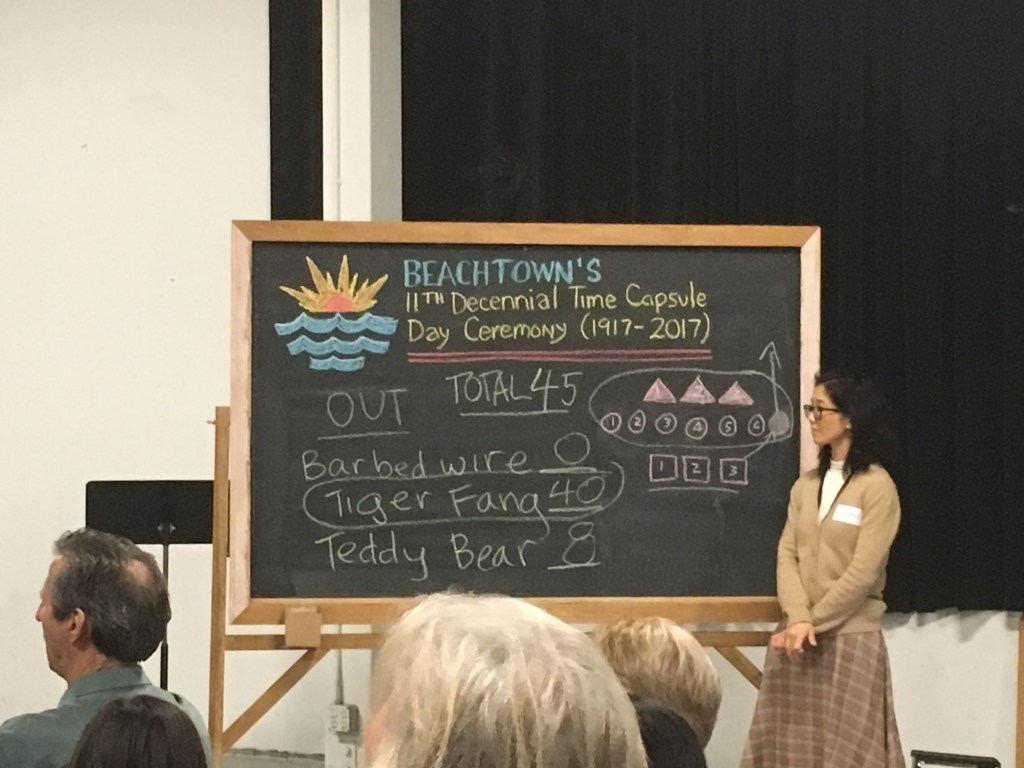 BEACHTOWN'S
11TH Decennial Time Capsule
Day Ceremony (1917-2017)
TOTAL 45
OUT
Barbed wire 0
Tiger Fang 40
Teddy Bear 8
1 2 3 4 5 6
1 2 3